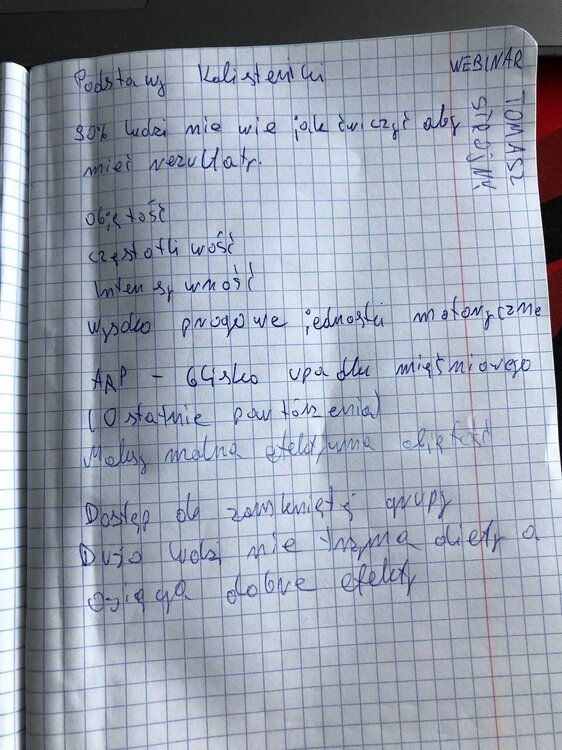 Podstawy Kalisteniki
WEBINAR
TOMASZ
90% ludzi nie wie jak ćwiczyć aby
mieć rezultaty.
objętość
częstotliwość
Intensywność
wysoko progowe jednostki motoryczne
ARP - blisko upadku mięśniowego
(Ostatnie powtórzenia)
Maksymalna efektywna objętość
Dostęp do zamkniętej grupy
Dużo ludzi nie trzyma diety a
osiąga dobre efekty